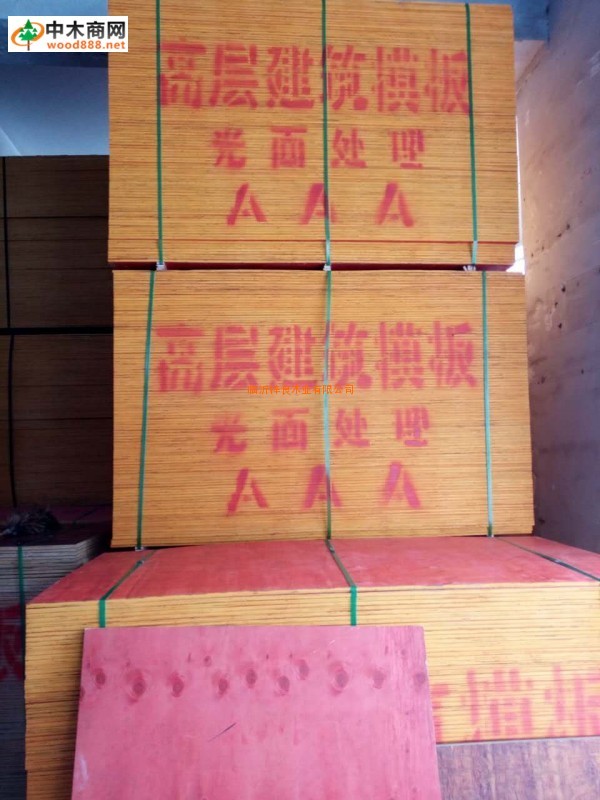 中木商网
wood888.net
高层建筑模板
光面处理
AAA
高层建筑模板
临沂祥良木业有限公司
光面处理
AAA
模板
板